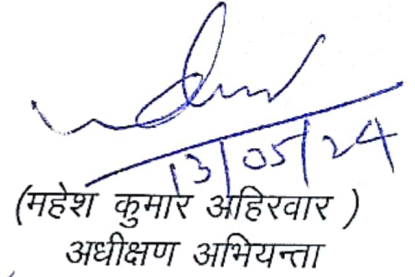 13/05/24
(महेश कुमार अहिरवार )
अधीक्षण अभियन्ता